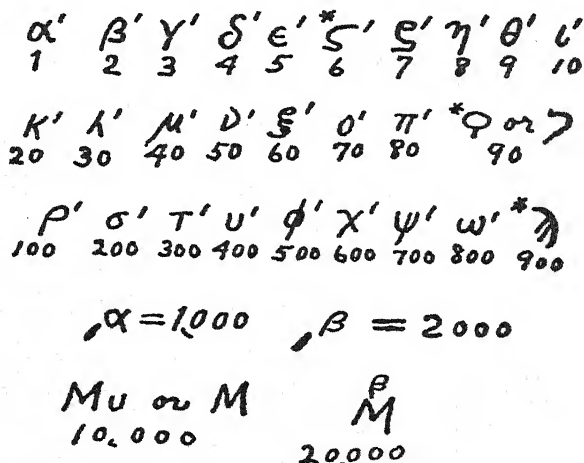 α′ β′ γ′ δ′ ϵ′ *ϛ′ ξ′ η′ θ′ ι′
1 2 3 4 5 6 7 8 9 10
κ′ λ′ μ′ ν′ ξ′ ο′ π′ *ϙ or
20 30 40 50 60 70 80 90
ρ′ σ′ τ′ υ′ ϕ′ χ′ ψ′ ω′ *ϡ
100 200 300 400 500 600 700 800 900
͵α = 1,000 ͵β = 2000
Mυ or M β
10,000 M
20,000